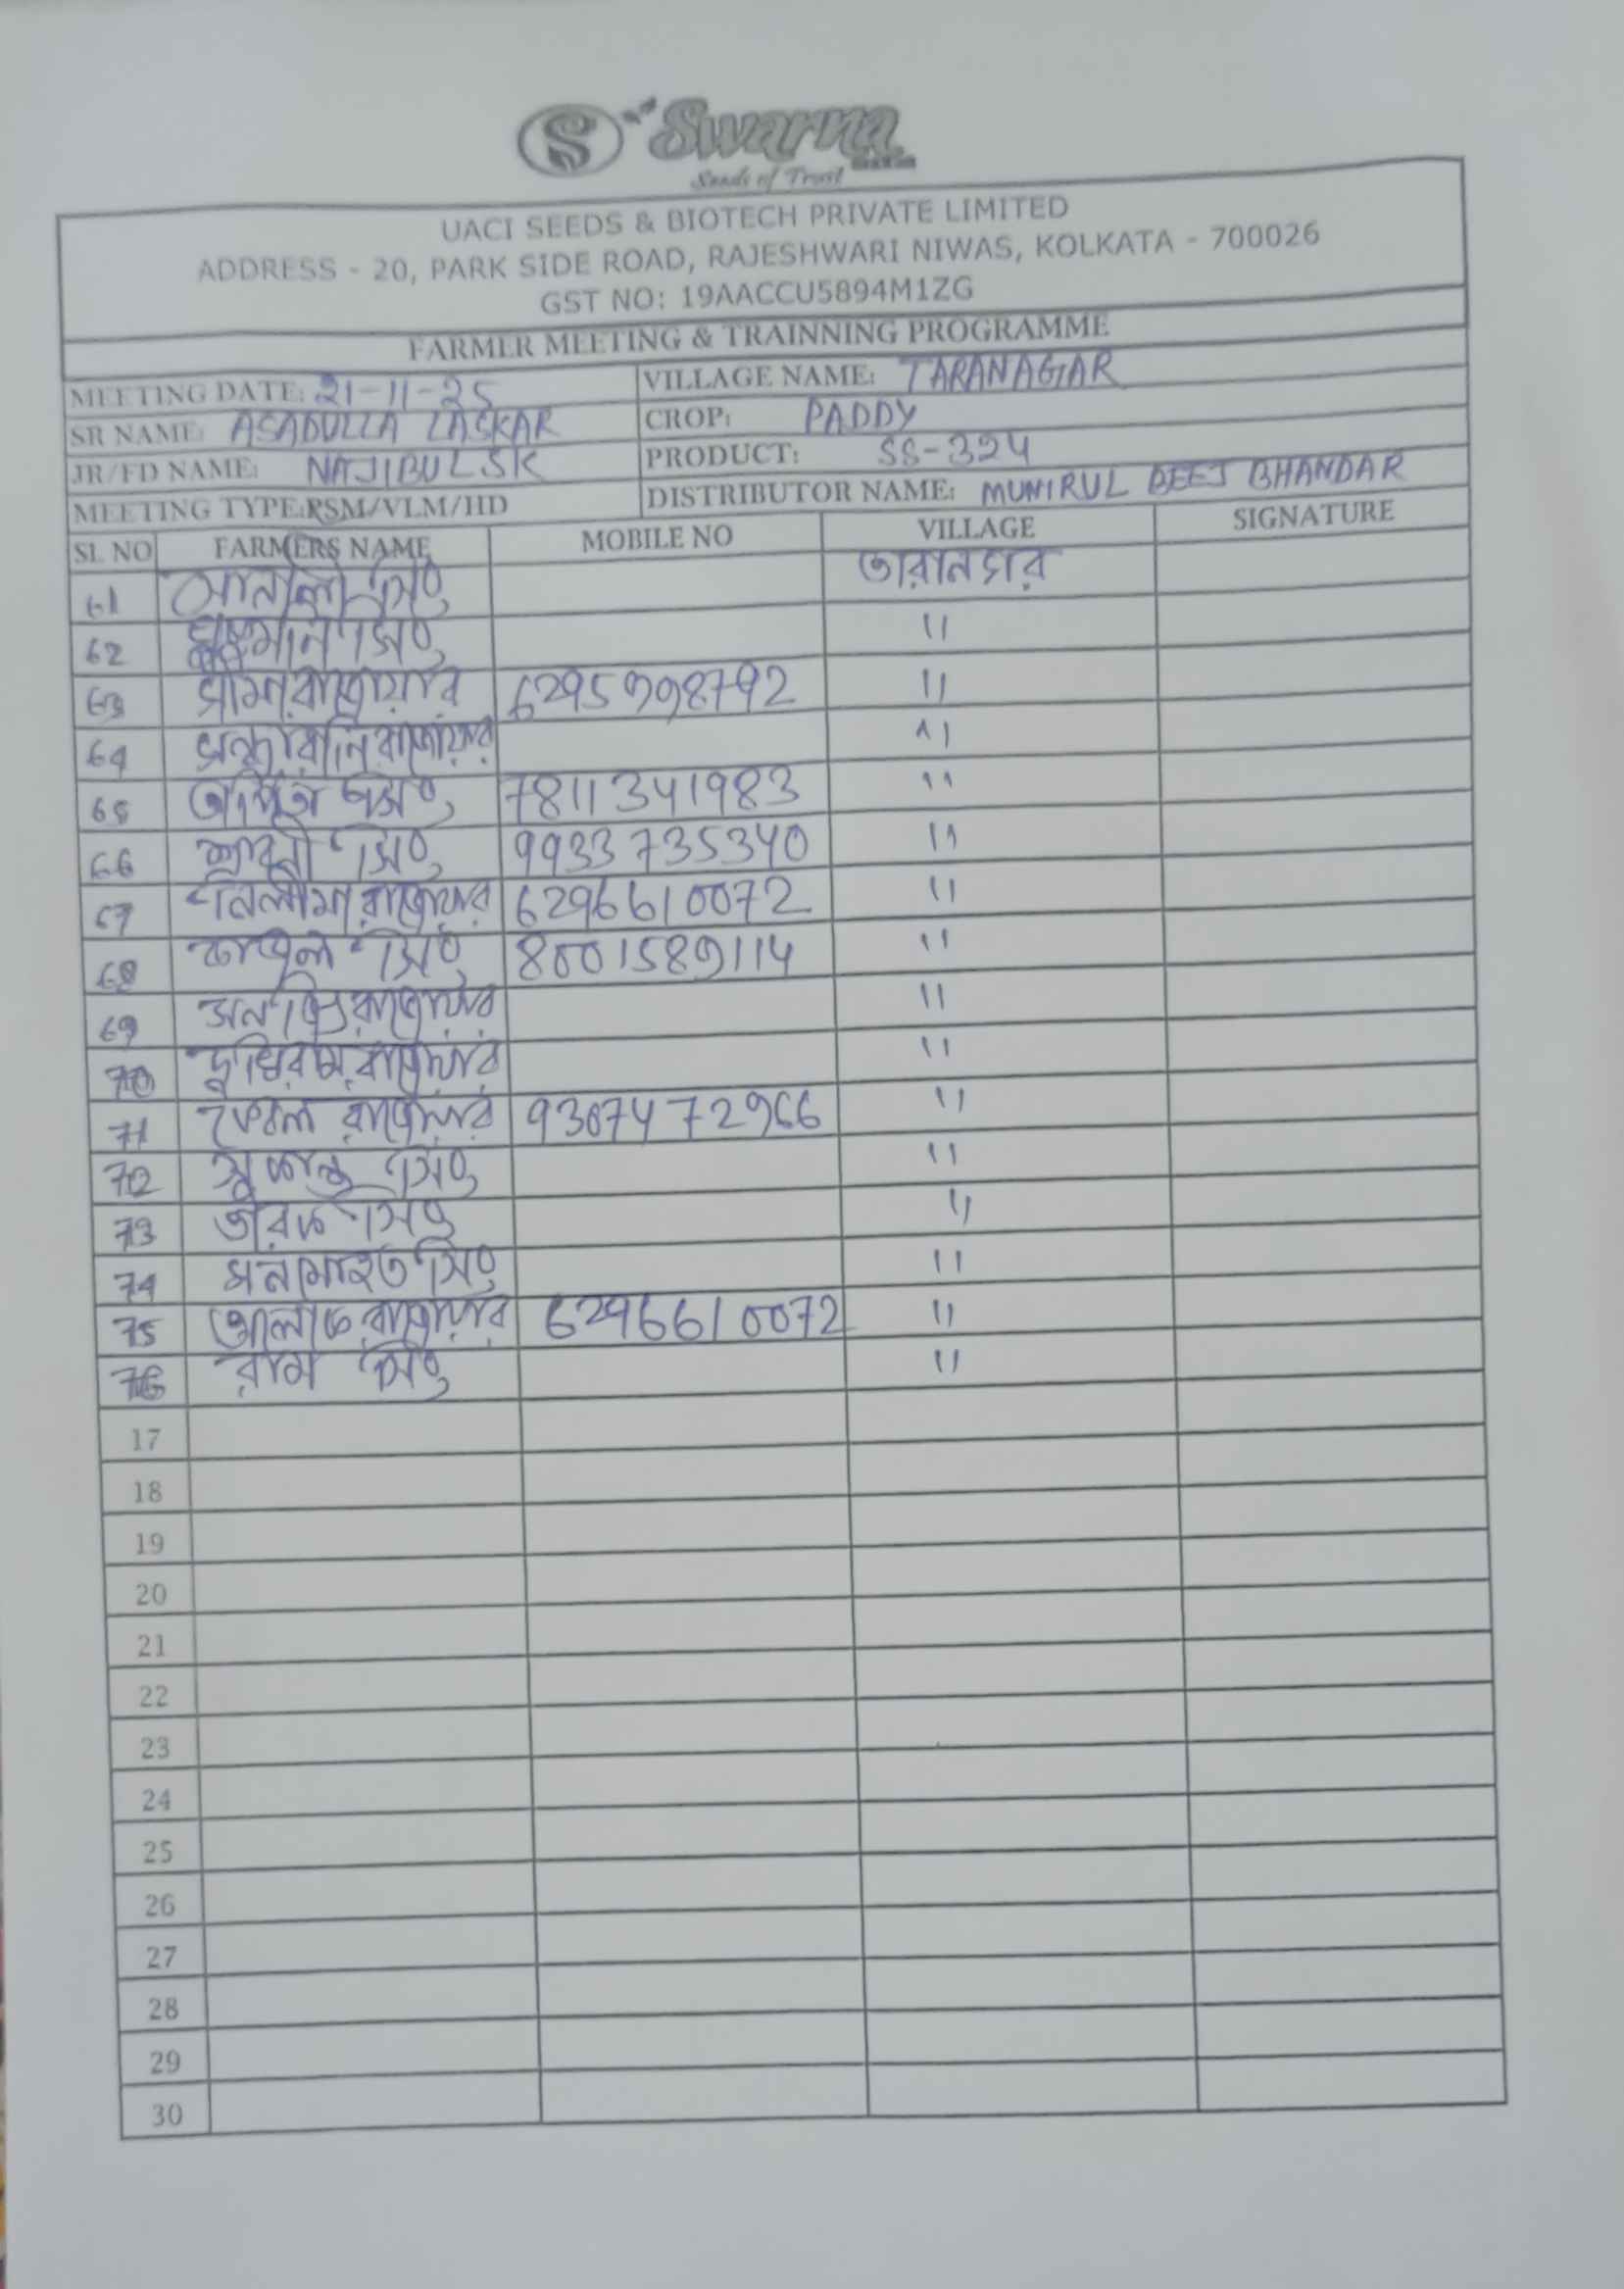 Swarna
Seeds of Trust
UACI SEEDS & BIOTECH PRIVATE LIMITED
ADDRESS - 20, PARK SIDE ROAD, RAJESHWARI NIWAS, KOLKATA - 700026
GST NO: 19AACCU5894M1ZG
FARMER MEETING & TRAINNING PROGRAMME
MEETING DATE: 21-11-25 VILLAGE NAME: TARANAGAR
SR NAME: ASADULLA LASKAR CROP: PADDY
JR/FD NAME: NAJIBUL SK PRODUCT: SS-324
MEETING TYPE:PSM/VLM/HD DISTRIBUTOR NAME: MUNIRUL BEEJ BHANDAR
SL NO FARMERS NAME MOBILE NO VILLAGE SIGNATURE
61 সোনালী সিং তারানগর
62 সিং "
63 রাজোয়ার 6295998792 "
64 রাজোয়ার "
65 সিং 7811341983 "
66 শ্রাবনী সিং 9933735340 "
67 নিলীমা রাজোয়ার 6296610072 "
68 কাজল সিং 8001589114 "
69 রাজোয়ার "
70 রাজোয়ার "
71 রাজোয়ার "
72 সুকান্ত সিং "
73 তারক সিং "
74 সিং "
75 রাজোয়ার 6296610072 "
76 রাম সিং "
17
18
19
20
21
22
23
24
25
26
27
28
29
30